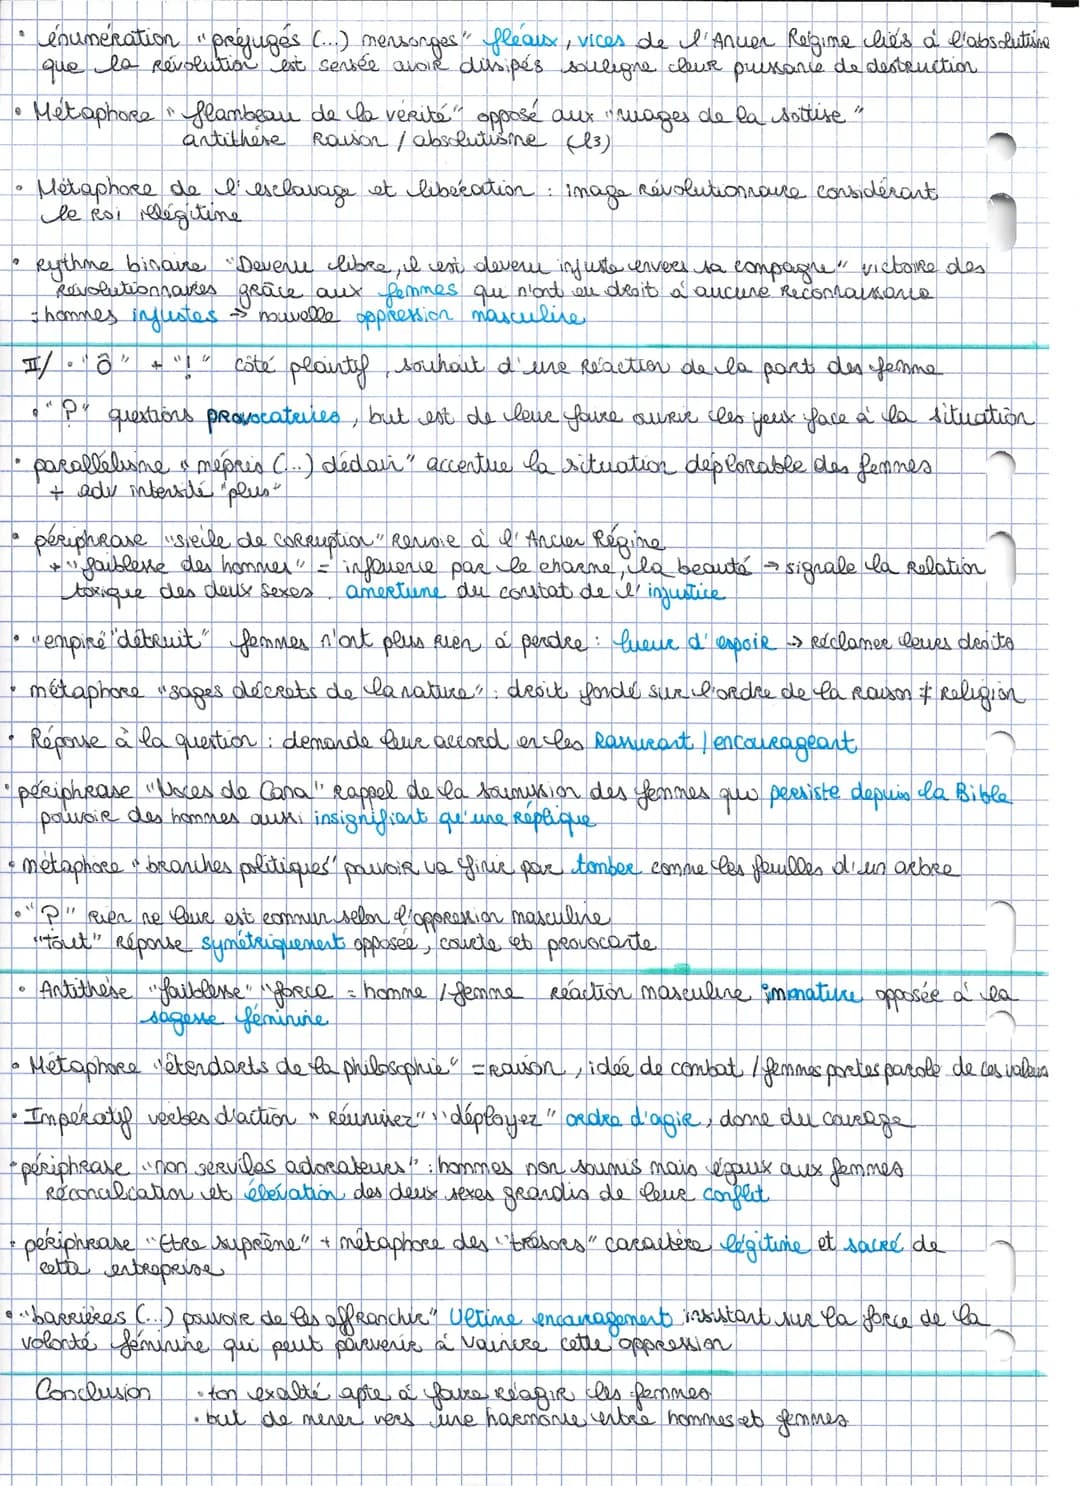 • énumération "préjugés (...) mensonges" fléaux, vices de l'Ancien Régime liés à l'absolutisme
que la Révolution est sensée avoir dissipés souligne leur puissance de destruction
• Métaphore "flambeau de la vérité" opposé aux "nuages de la sottise"
antithèse Raison / absolutisme (l3)
• Métaphore de l'esclavage et libération : image Révolutionnaire considérant
le Roi illégitime
• Rythme binaire "Devenu libre, il est devenu injuste envers sa compagne" victoire des
Révolutionnaires grâce aux femmes qui n'ont eu droit à aucune Reconnaissance
= hommes injustes → nouvelle oppression masculine
II/ • "ô" + "!" côté plaintif, souhait d'une Réaction de la part des femme
• "?" questions provocatrices, but est de leur faire ouvrir les yeux face à la situation
• parallélisme "mépris (...) dédain" accentue la situation déplorable des femmes
+ adv intensité "plus"
• périphrase "siècle de corruption" Renvoie à l'Ancien Régime
+ "faiblesse des hommes" = influence par le charme, la beauté → signale la Relation
toxique des deux sexes. amertume du constat de l'injustice
• "empire détruit" femmes n'ont plus Rien à perdre : lueur d'espoir → réclamer leurs droits
• métaphore "sages décrets de la nature" : droit fondé sur l'ordre de la Raison ≠ Religion
• Réponse à la question : demande leur accord en les Rassurant / encourageant
• périphrase "Noces de Cana" Rappel de la soumission des femmes qui persiste depuis la Bible
pouvoir des hommes aussi insignifiant qu'une Réplique
• métaphore "branches politiques" pouvoir va finir par tomber comme les feuilles d'un arbre
• "?" Rien ne leur est commun selon l'oppression masculine
"tout" Réponse symétriquement opposée, courte et provocante
• Antithèse "faiblesse" "force" = homme / femme Réaction masculine immature opposée à la
sagesse féminine
• Métaphore "étendarts de la philosophie" = Raison, idée de combat / femmes portes parole de ces valeurs
• Impératif verbes d'action "Réunissez" "déployez" ordre d'agir, donne du courage
• périphrase "non serviles adorateurs" : hommes non soumis mais égaux aux femmes
Réconciliation et élévation des deux sexes grandis de leur conflit
• périphrase "Etre suprême" + métaphore des "trésors" caractère légitime et sacré de
cette entreprise
• "barrières (...) pouvoir de les affranchir" Ultime encouragement insistant sur la force de la
volonté féminine qui peut parvenir à vaincre cette oppression
Conclusion • ton exalté apte à faire Réagir les femmes
• but de mener vers une harmonie entre hommes et femmes